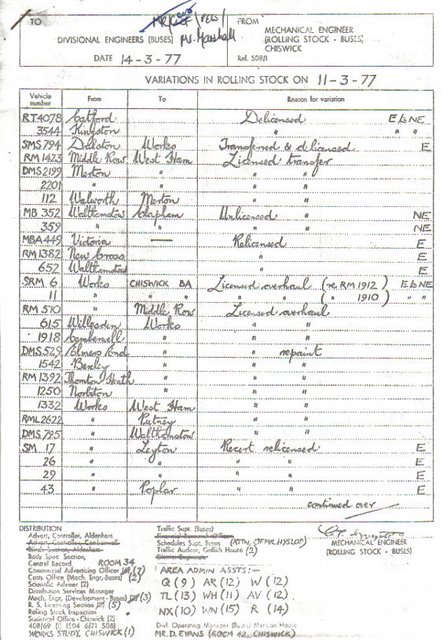 TO
DIVISIONAL ENGINEERS (BUSES)
Mr. Marshall
DATE 14-3-77
FROM
MECHANICAL ENGINEER
(ROLLING STOCK - BUSES)
CHISWICK
Ref. 508/1
VARIATIONS IN ROLLING STOCK ON 11-3-77
Vehicle number From To Reason for variation
RT4078 Catford Delicensed E & NE
3544 Kingston " " "
SMS 794 Dalston Works Transferred & delicensed E
RM 1423 Middle Row West Ham Licensed transfer
DMS 2199 Merton " " "
2201 " " " "
112 Walworth Merton " "
MB 352 Walthamstow Clapham Unlicensed " NE
359 " " " " NE
MBA 449 Victoria — Relicensed E
RM 1382 New Cross " E
652 Walthamstow " E
SRM 6 Works CHISWICK BA Licensed overhaul (re. RM 1912) E & NE
11 " " " " " ( " 1910) " "
RM 510 " Middle Row Licensed overhaul
615 Willesden Works " "
1918 Camberwell " " "
DMS 529 Elmers End " " repaint
1542 Bexley " " "
RM 1392 Thornton Heath " " "
1250 Norbiton " " "
1332 Works West Ham " "
RML 2622 " Putney " "
DMS 795 " Walthamstow " "
SM 17 " Leyton Recert relicensed E
26 " " " " E
29 " " " " E
43 " Poplar " " E
continued over
DISTRIBUTION
Advert. Controller, Aldenham
Body Spec Section,
Central Record ROOM 34
Commercial Advertising Officer (7)
Costs Office (Mech. Engr.-Buses) (2)
Scientific Adviser (2)
Distribution Services
Mech. Engr. (Development - Buses) (3)
R. S. Licensing Section (5)
Rolling Stock Inspection
Statistical Office - Chiswick (2)
WORKS STUDY, CHISWICK (1)
Traffic Supt. (Buses)
Schedules Supt. Buses (ATTN. OF MR. HYSLOP)
Traffic Auditor, Griffith House (2)
AREA ADMIN ASSTS:-
Q (9) AR (12) W (12)
TL (13) WH (11) AV (12)
NX (10) WN (15) R (14)
Divl. Operating Manager (Buses) Marlson House
MR. D. EVANS (ROOM 42, CHISWICK)
MECHANICAL ENGINEER
(ROLLING STOCK - BUSES)